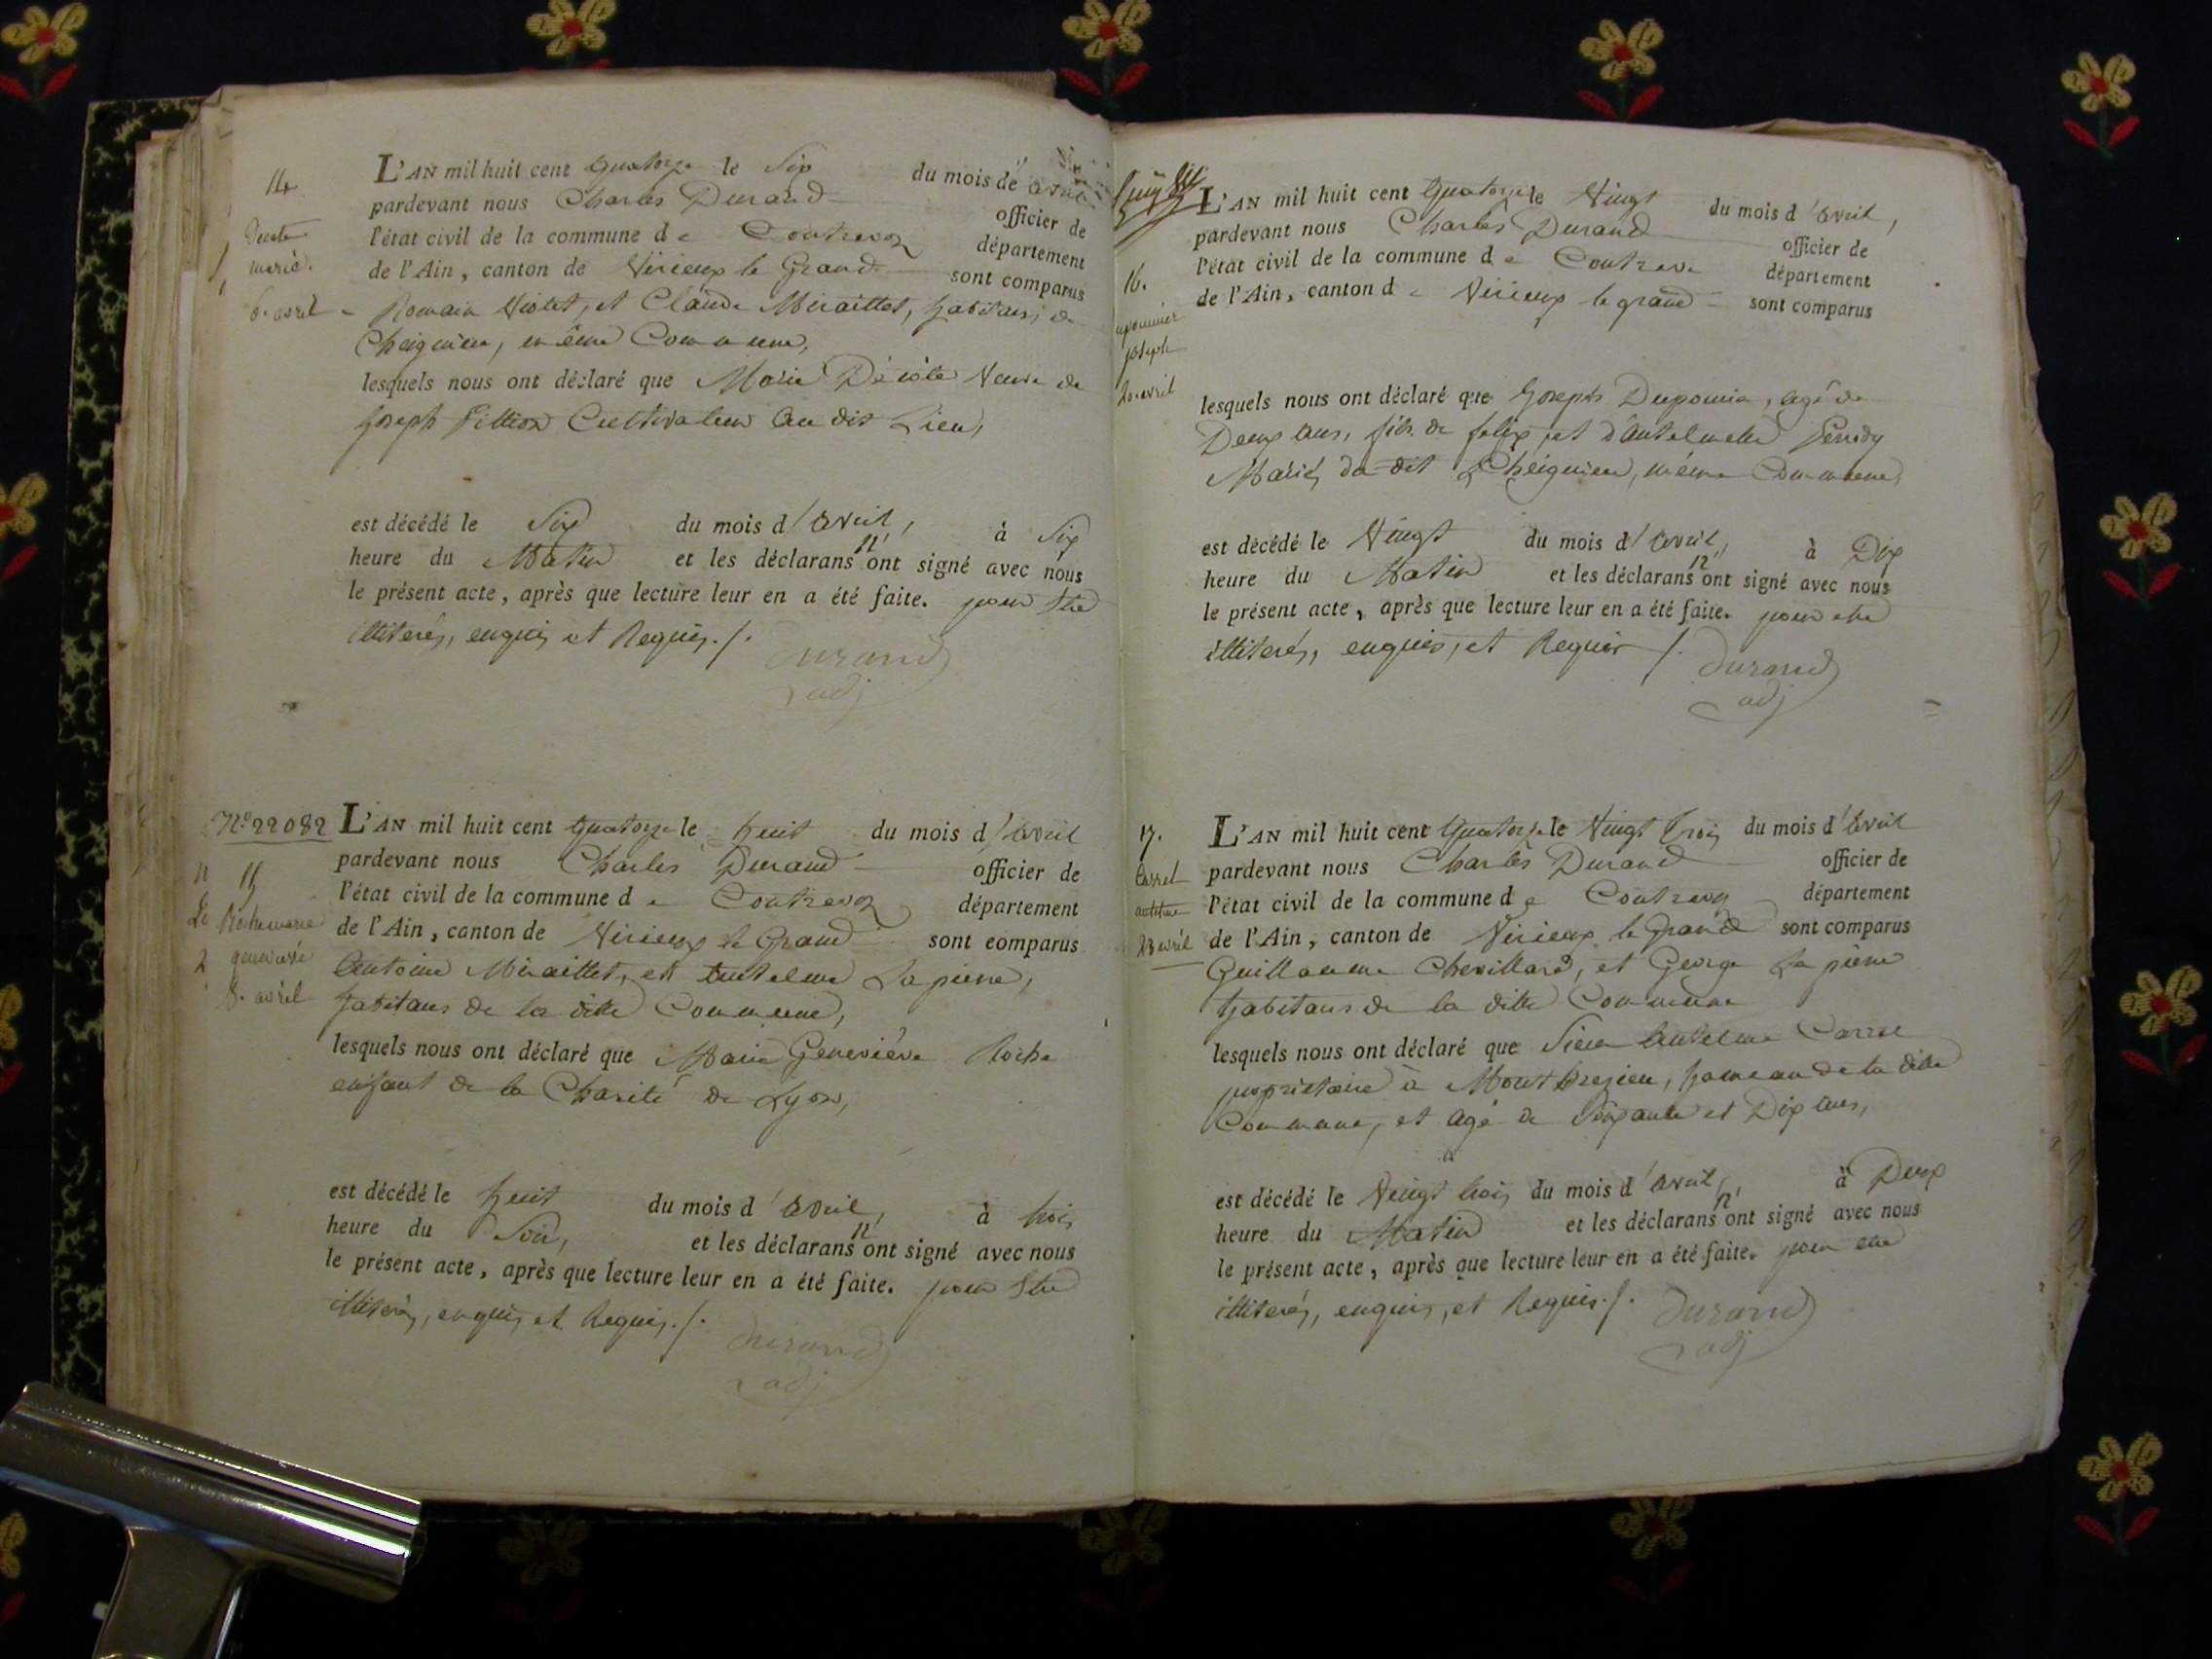 14
marie.
6. avril
L'AN mil huit cent Quatorze le Six du mois de avril
pardevant nous Charles Durand officier de
l'état civil de la commune de Contrevoz département
de l'Ain, canton de Virieux le Grand sont comparus
Romain Violet, et Claude Miraillet, habitans de
Cheignieu, même Commune,
lesquels nous ont déclaré que Marie Veuve de
Joseph Fillion Cultivateur au dit Lieu,
est décédé le Six du mois d'avril, à Six
heure du Matin et les déclarans n'ont signé avec nous
le présent acte, après que lecture leur en a été faite. pour être
illiterés, enquis et Requis./.
Durand
adj
N.º 22082
15
Roche marie
genevieve
8. avril
L'AN mil huit cent Quatorze le huit du mois d'avril
pardevant nous Charles Durand officier de
l'état civil de la commune de Contrevoz département
de l'Ain, canton de Virieux le Grand sont comparus
Antoine Miraillet, et Antelme Lapierre,
habitans de la ditte Commune,
lesquels nous ont déclaré que Marie Geneviève Roche
enfant de la Charité de Lyon,
est décédé le huit du mois d'avril, à trois
heure du Soir, et les déclarans n'ont signé avec nous
le présent acte, après que lecture leur en a été faite. pour être
illiterés, enquis et Requis./.
Durand
adj
16.
joseph
20 avril
L'AN mil huit cent Quatorze le Vingt du mois d'avril,
pardevant nous Charles Durand officier de
l'état civil de la commune de Contrevoz département
de l'Ain, canton de Virieux le grand sont comparus
lesquels nous ont déclaré que Joseph Dupomier, agé de
Deux ans, fils de felix, et d'Antelmette
Mariés du dit Cheignieu, même Commune,
est décédé le Vingt du mois d'avril, à Dix
heure du Matin et les déclarans n'ont signé avec nous
le présent acte, après que lecture leur en a été faite. pour etre
illiterés, enquis, et Requis /.
Durand
adj
17.
Carrel
antelme
23 avril
L'AN mil huit cent Quatorze le Vingt trois du mois d'avril
pardevant nous Charles Durand officier de
l'état civil de la commune de Contrevoz département
de l'Ain, canton de Virieux le Grand sont comparus
Guillaume Chevillard, et George Lapierre
habitans de la ditte Commune
lesquels nous ont déclaré que Sieur Antelme Carrel
proprietaire à Montbrezieu, hameau de la ditte
Commune, et agé de Soixante et Dix ans,
est décédé le Vingt trois du mois d'avril, à Deux
heure du Matin et les déclarans n'ont signé avec nous
le présent acte, après que lecture leur en a été faite. pour etre
illiterés, enquis, et Requis./.
Durand
adj